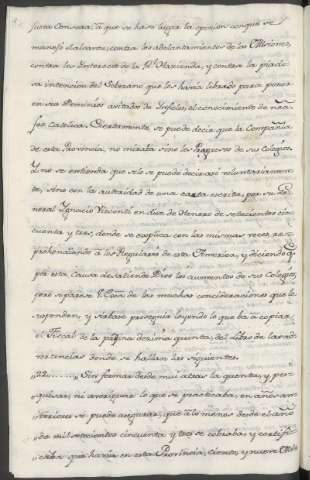 justa Censura: à que se hace lugar la opinion conque se
manejo Salazar, contra los adelantamientos de las Misiones,
contra los Intereses de la Rl. Hazienda, y contra la piado-
sa intencion del Soberano que los havia librado para poner
en sus Dominios avitados de Infieles, el conocimiento de nrã
fee Catolica. Ciertamente se puede decir que la Compañia
de esta Provincia, no miraba sino los Progresos de sus Colegios,
Y no se entienda que esto se puede decir asi voluntariamen-
te, sino con la autoridad de una carta escrita, por su Ge-
neral Ygnacio Visconti en diez de Henero de setecientos cin-
cuenta y tres, donde se explica con las mismas veces, re-
prehendiendo à los Regulares de esta America, y diciendo q.
pr. esta Causa desatiende Dios los aumentos de sus Colegios,
pero separese V. Exa. de las muchas consideraciones que le
responden, y sirvase proseguir leyendo lo que ba à copiar
el Fiscal de la pagina dezima quinta, del Libro de las ad-
vertencias donde se hallan las siguientes.
"22........ Sin formar desde mui atras la quenta, y pes-
"quisar, ni averiguar lo que se practicaba, en años an-
"teriores se puede asegurar, que à lo menos desde el año
"de mil setecientos cincuenta y tres se cobraba y certifi-
"caba que havia en esta Provincia, ciento, y nueve Misio-